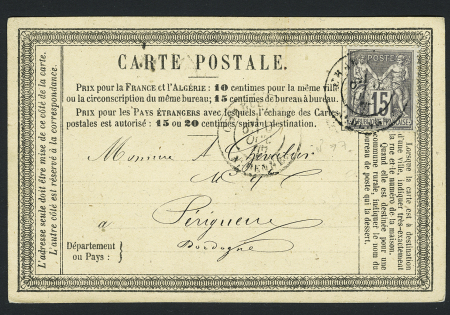 CARTE POSTALE.
PRIX pour la FRANCE et l'ALGÉRIE: 10 centimes pour la même ville
ou la circonscription du même bureau; 15 centimes de bureau à bureau.
PRIX pour les PAYS ÉTRANGERS avec lesquels l'échange des Cartes
postales est autorisé: 15 ou 20 centimes, suivant destination.
Monsieur A Chevalier
à Périgueux
Département
ou Pays:
Dordogne
L'adresse seule doit être mise de ce côté de la carte.
L'autre côté est réservé à la correspondance.
Lorsque la carte est à destination
d'une ville, indiquer très-exactement
la rue et le numéro de la maison.
Quand elle est destinée pour une
commune rurale, indiquer le nom du
bureau de poste qui la dessert.
POSTES
15